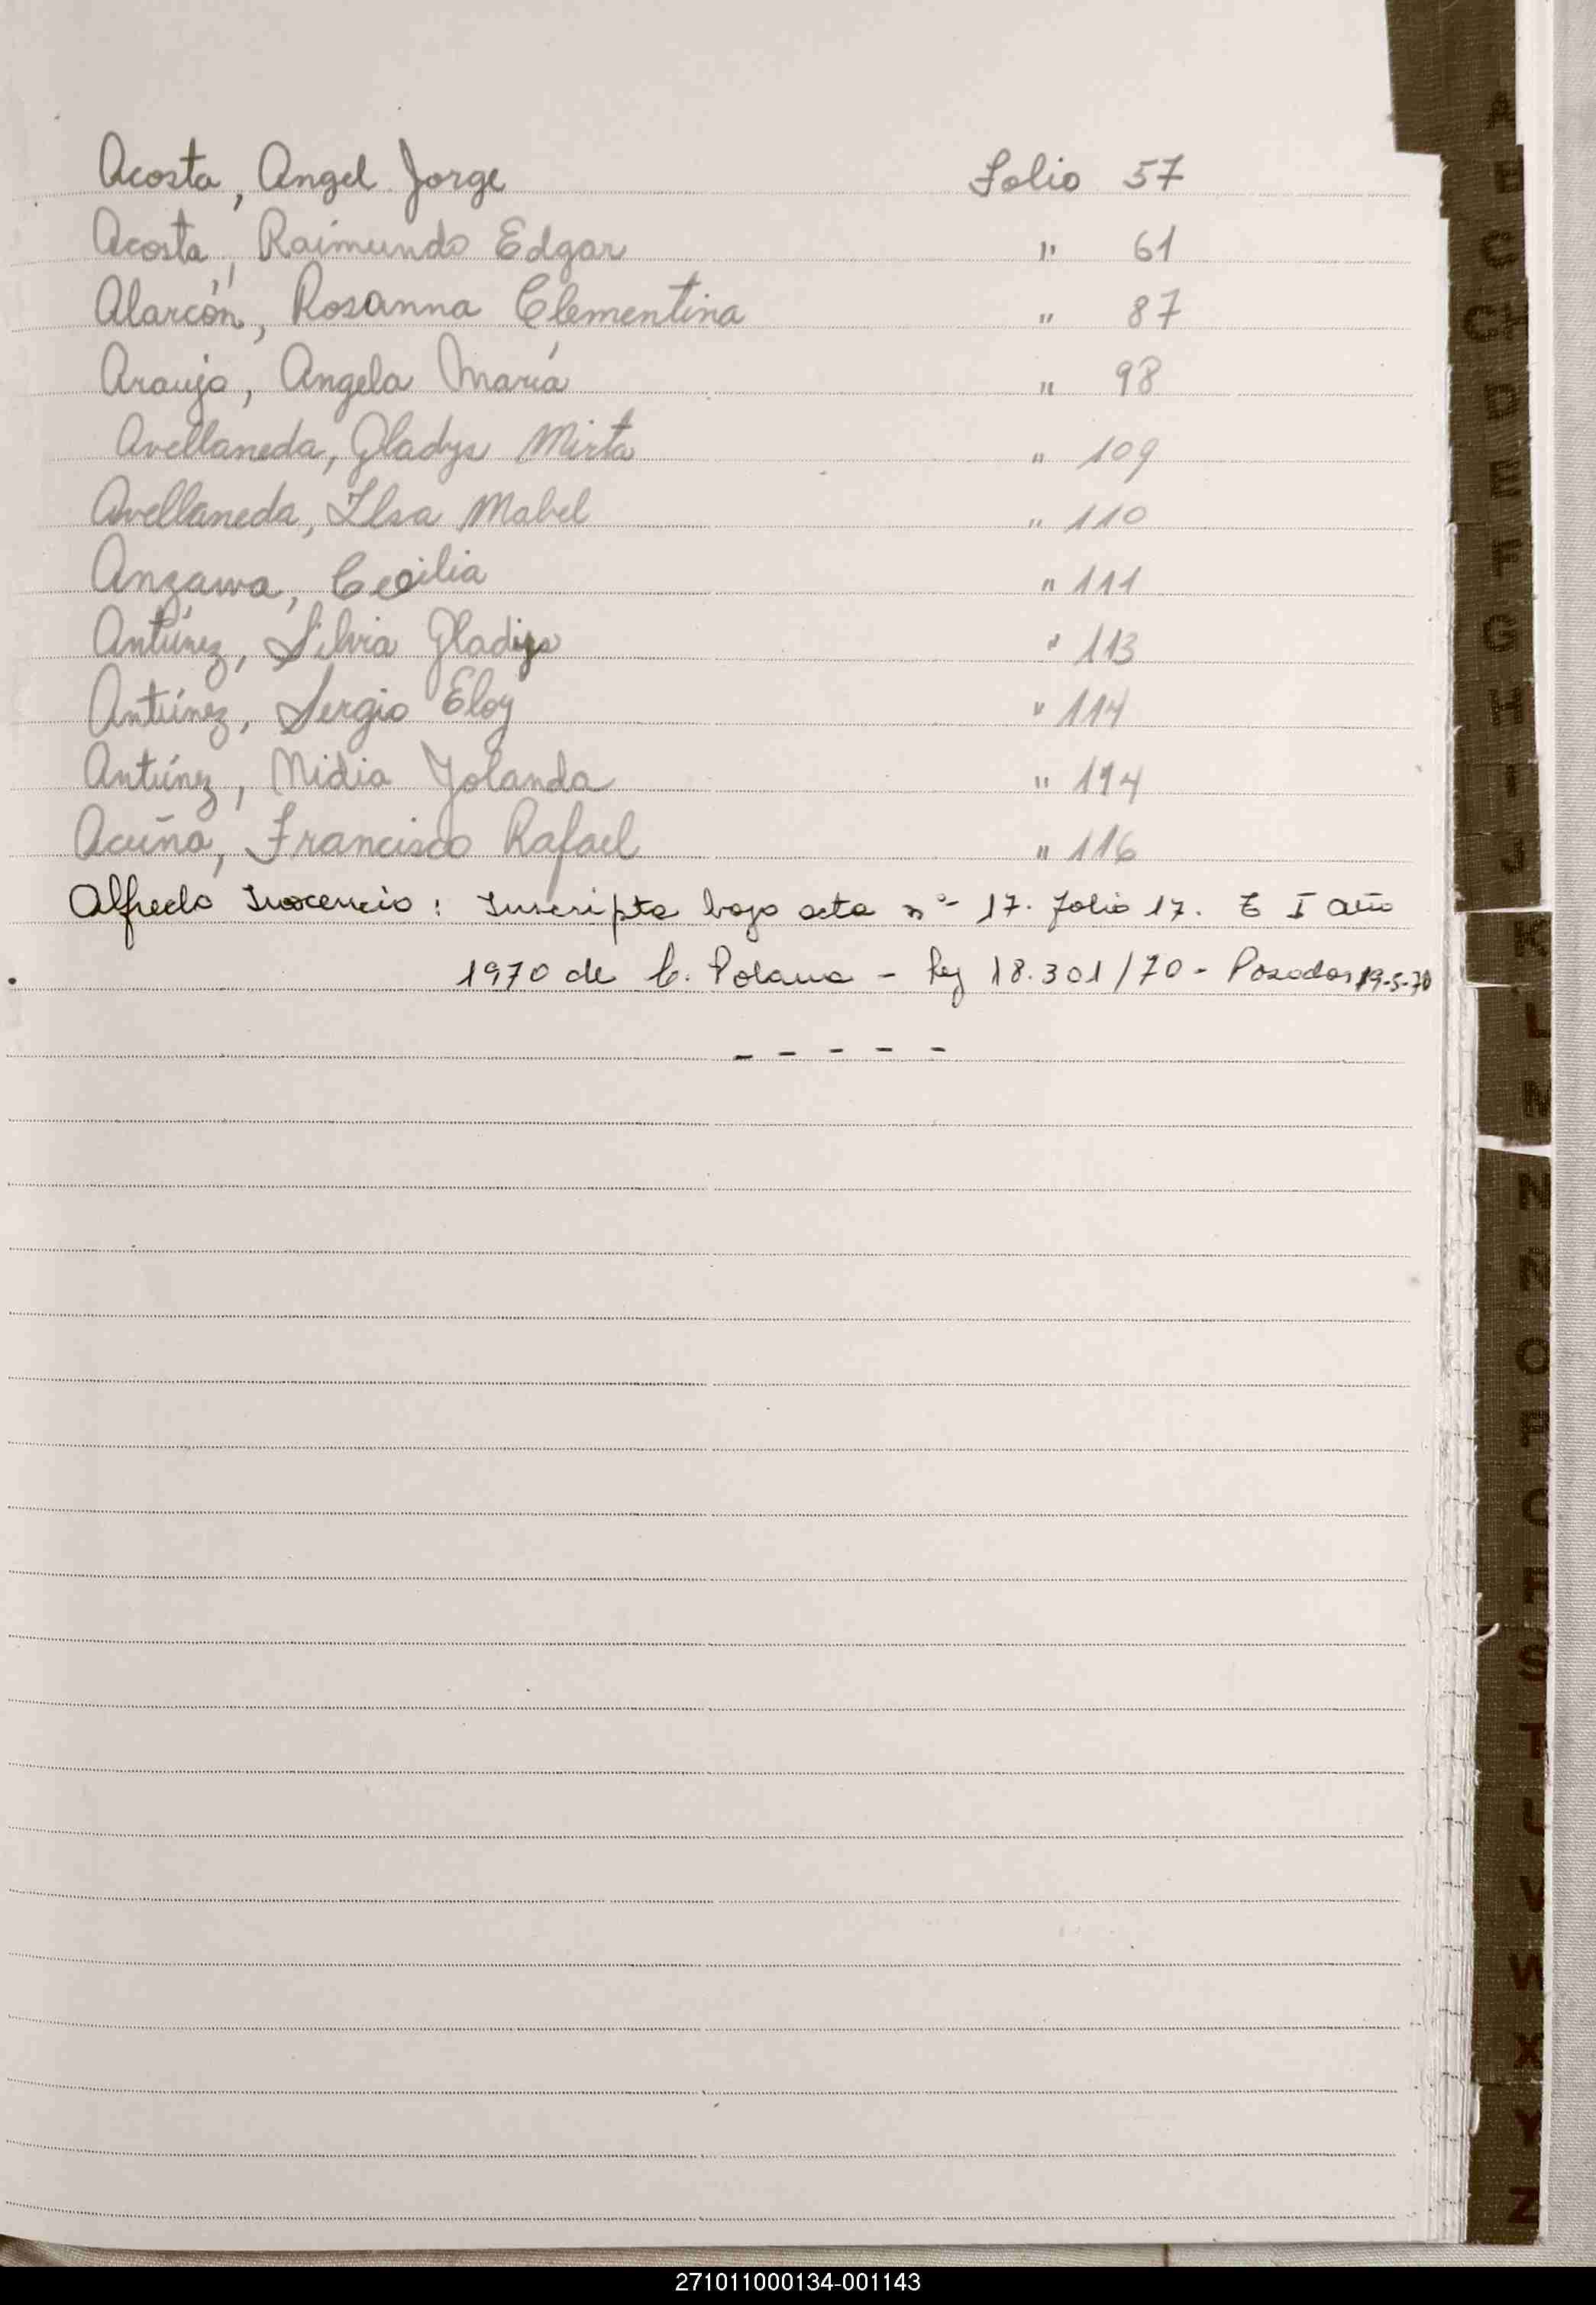 Acosta, Angel Jorge Folio 57
Acosta, Raimundo Edgar " 61
Alarcón, Rosanna Clementina " 87
Araujo, Angela María " 98
Avellaneda, Gladys Mirta " 109
Avellaneda, Ilsa Mabel " 110
Anzawa, Cecilia " 111
Antúnez, Silvia Gladys " 113
Antúnez, Sergio Eloy " 114
Antúnez, Nidia Yolanda " 114
Acuña, Francisco Rafael " 116
Alfredo Inocencio: Inscripta bajo acta nº 17. folio 17. T I año
1970 de C. Polana - Ley 18.301/70 - Posadas 19-5-70
- - - - -
A
B
C
CH
D
E
F
G
H
I
J
K
L
N
Ñ
O
P
S
T
V
W
X
Y
Z
271011000134-001143